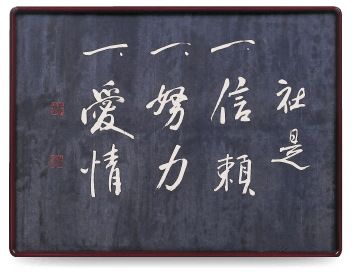 社是
一、信頼
一、努力
一、愛情